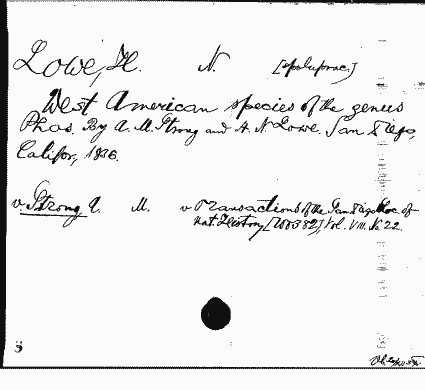 Lowe, H. N.
West American species of the genus
Phos. By A. M. Strong and H. N. Lowe. San Diego,
Califor, 1936.
v Strong, A. M. v Transactions of the San Diego Soc. of
Nat. History Vol. VIII. No 22.
S